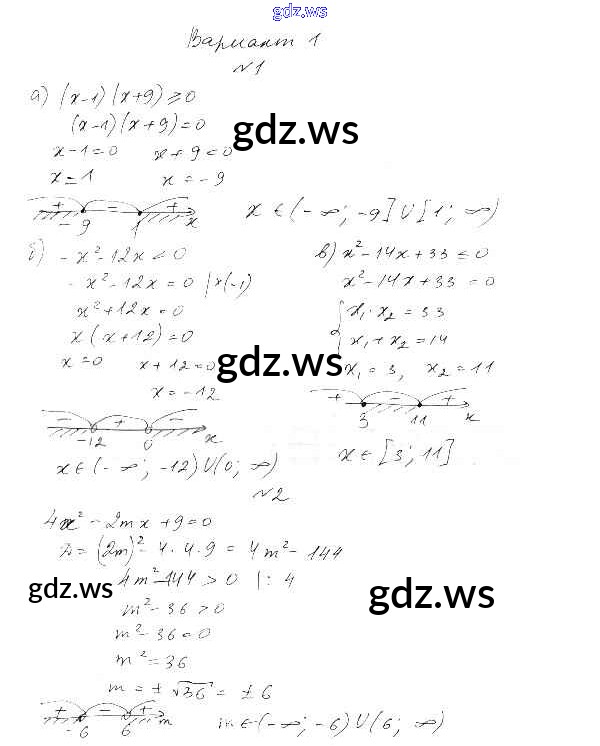 gdz.ws
Вариант 1
№1
а) (x-1)(x+9)≥0
(x-1)(x+9)=0
gdz.ws
x-1=0 x+9=0
x=1 x=-9
+ - +
-9 1 x
x∈(-∞; -9]∪[1; ∞)
б) -x²-12x<0
-x²-12x=0 |×(-1)
x²+12x=0
x(x+12)=0
x=0 x+12=0
x=-12
- + -
-12 0 x
x∈(-∞; -12)∪(0; ∞)
в) x²-14x+33≤0
x²-14x+33=0
{x₁·x₂=33
x₁+x₂=14
x₁=3, x₂=11
gdz.ws
+ - +
3 11 x
x∈[3; 11]
№2
4x²-2mx+9=0
D=(2m)²-4·4·9=4m²-144
4m²-144>0 |:4
gdz.ws
gdz.ws
m²-36>0
m²-36=0
m²=36
m=±√36=±6
+ - +
-6 6 m
m∈(-∞; -6)∪(6; ∞)